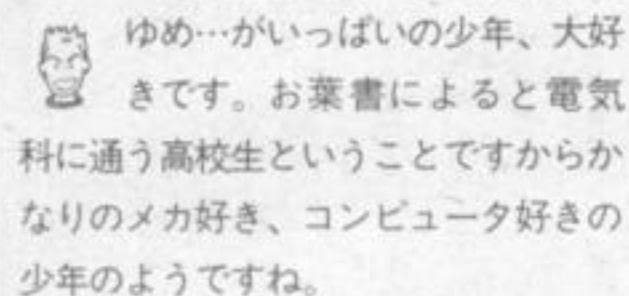 ゆめ…がいっぱいの少年、大好
きです。お葉書によると電気
科に通う高校生ということですからか
なりのメカ好き、コンピュータ好きの
少年のようですね。